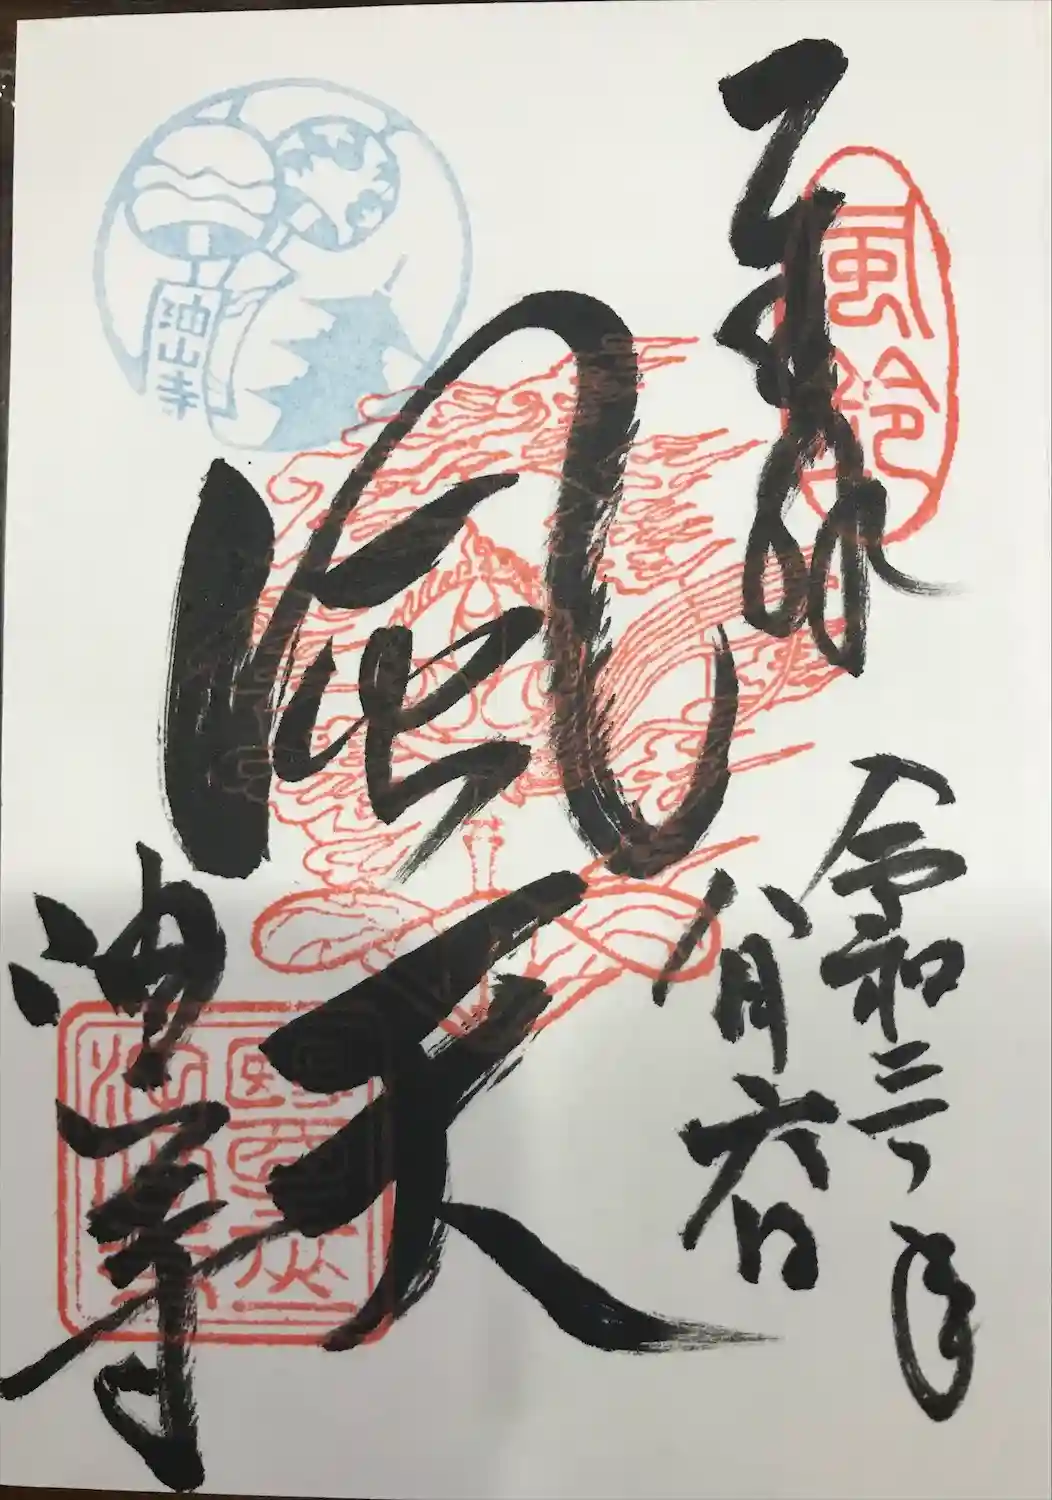 風鈴
令和三年
八月六日
風天
油山寺
油山寺